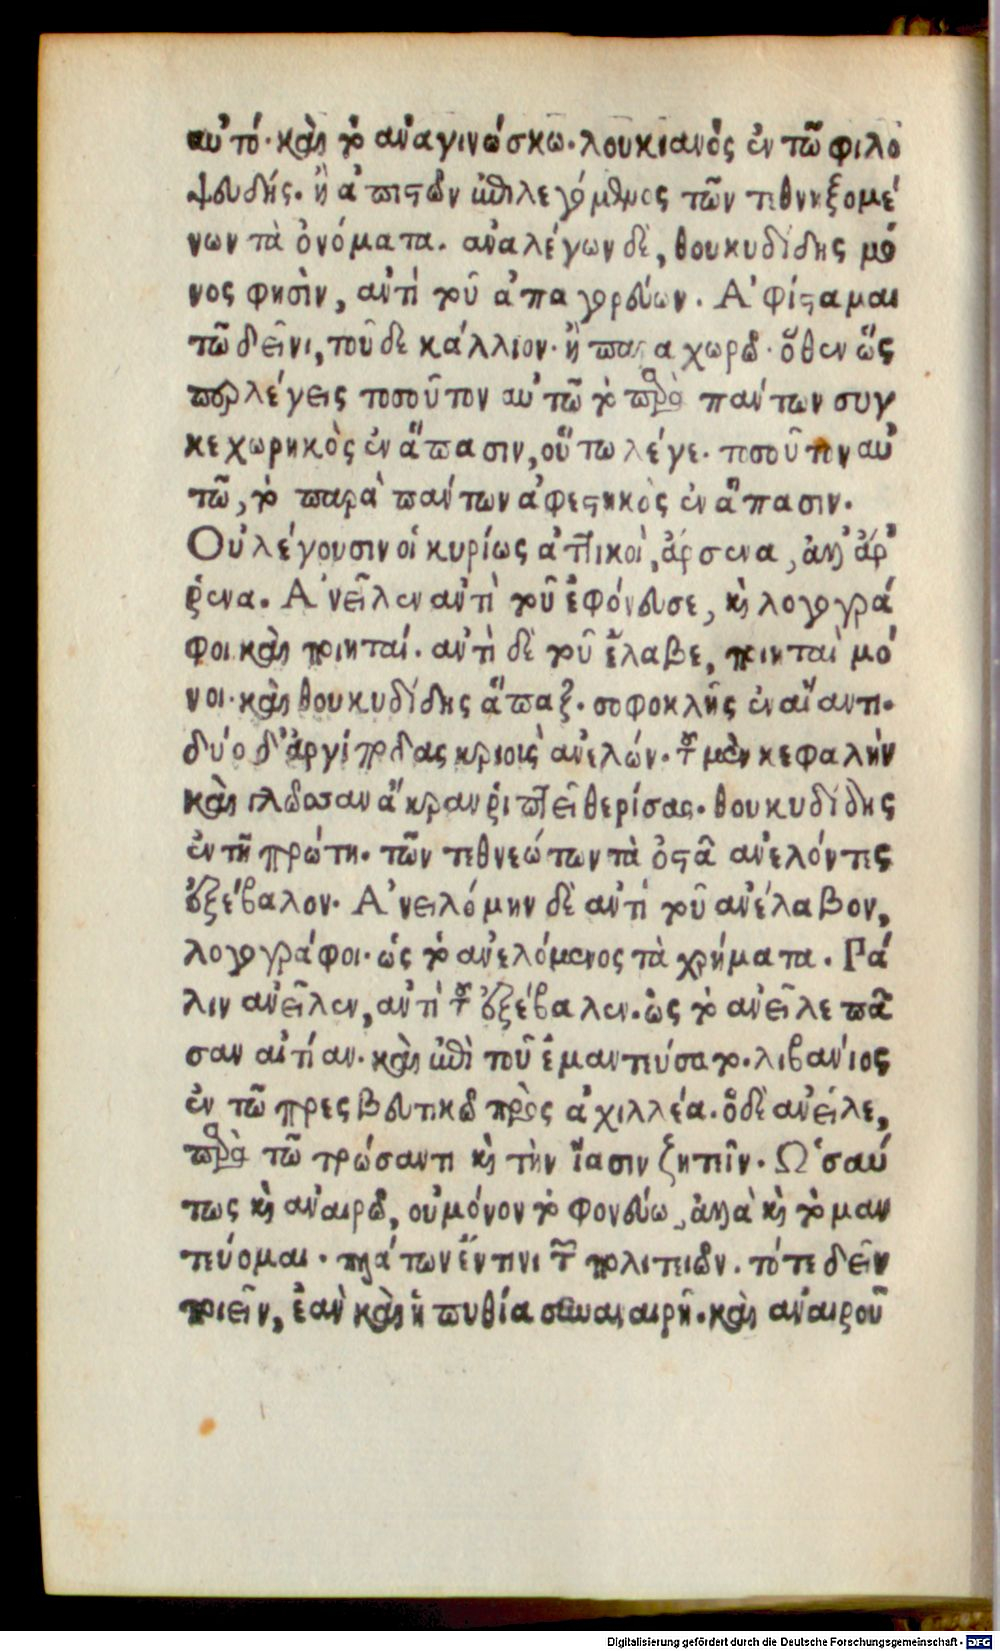 αὐτό· καὶ τὸ ἀναγινώσκω· λουκιανὸς ἐν τῶ φιλο
ψευδής. ἢ ἀπιστῶν ἐπιλεγόμενος τῶν τεθνηξομέ
νων τὰ ὀνόματα. ἀναλέγων δὲ, θουκυδίδης μό
νος φησὶν, ἀντὶ τοῦ ἀπαγορεύων. Ἀφίσταμαι
τῶ δεῖνι, τοῦδε κάλλιον· ἢ παραχωρῶ· ὅθεν ὥς
περ λέγεις τοσοῦτον αὐτῶ τὸ παρὰ πάντων συγ
κεχωρηκὸς ἐν ἅπασιν, οὕτω λέγε. τοσοῦτον αὐ
τῶ, τὸ παρὰ πάντων ἀφεστηκὸς ἐν ἅπασιν.
Οὐ λέγουσιν οἱ κυρίως ἀττικοὶ, ἄρσενα, ἀλλ' ἄρ
ῥενα. Ἀνεῖλεν ἀντὶ τοῦ ἐφόνευσε, καὶ λογογρά
φοι καὶ ποιηταί. ἀντὶ δὲ τοῦ ἔλαβε, ποιηταὶ μό
νοι. καὶ θουκυδίδης ἅπαξ. σοφοκλῆς ἐν αἴαντι.
δύο δ' ἀργίποδας κριοὺς ἀνελών. τοῦ μὲν κεφαλὴν
καὶ γλῶσσαν ἄκραν ῥιπτεῖ θερίσας. θουκυδίδης
ἐν τῆ πρώτη. τῶν τεθνεώτων τὰ ὀστᾶ ἀνελόντες
ἐξέβαλον. Ἀνειλόμην δὲ ἀντὶ τοῦ ἀνέλαβον,
λογογράφοι. ὡς τὸ ἀνελόμενος τὰ χρήματα. Πά
λιν ἀνεῖλεν, ἀντὶ τοῦ ἐξέβαλεν. ὡς τὸ ἀνεῖλε πᾶ
σαν αἰτίαν. καὶ ἐπὶ τοῦ ἐμαντεύσατο. λιβάνιος
ἐν τῶ πρεσβευτικῶ πρὸς ἀχιλλέα. ὁ δὲ ἀνεῖλε,
παρὰ τῶ τρώσαντι καὶ τὴν ἴασιν ζητεῖν. Ὡσαύ
τως καὶ ἀναιρῶ, οὐ μόνον τὸ φονεύω, ἀλλὰ καὶ τὸ μαν
τεύομαι. πλάτων ἔν τινι τῶν πολιτειῶν. τότε δεῖν
ποιεῖν, ἐὰν καὶ ἡ πυθία συναναιρῆ. καὶ ἀναιροῦ
Digitalisierung gefördert durch die Deutsche Forschungsgemeinschaft - DFG